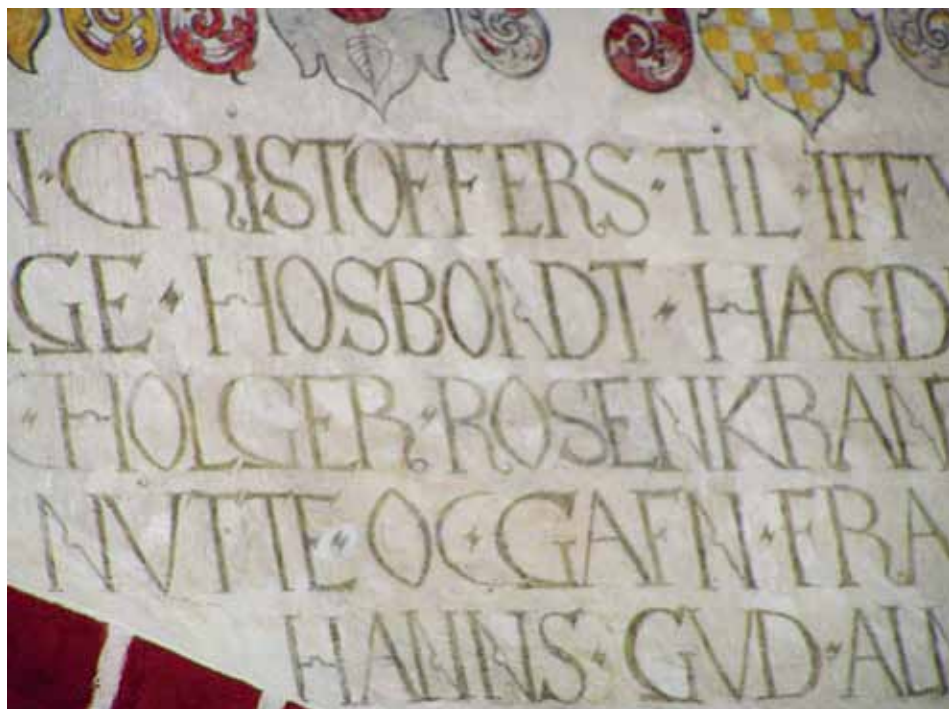 CHRISTOFFERS · TIL · IFF
GE · HOSBONDT · HAGD
HOLGER · ROSENKRAN
NVTTE OC · GAFN · FRA
HANNS · GVD · AL